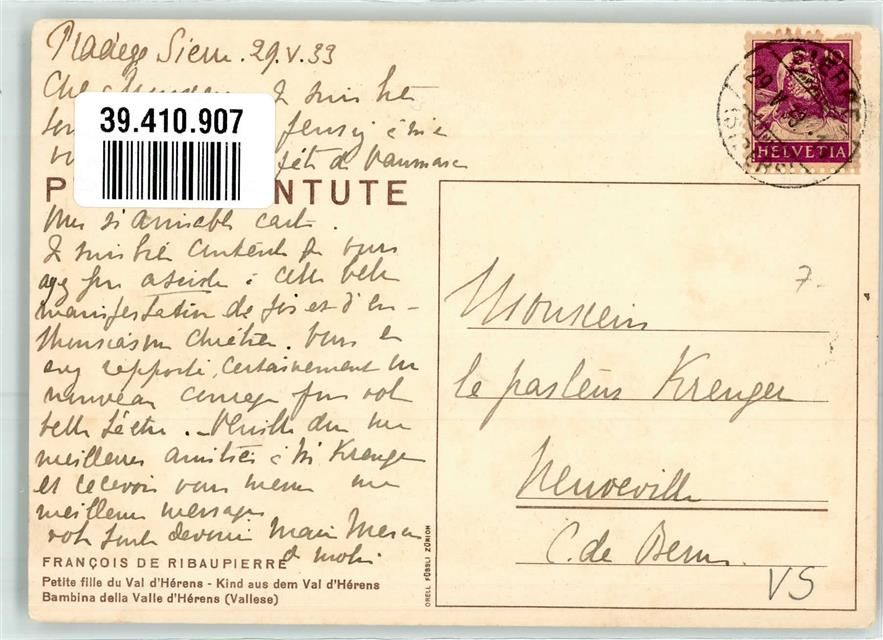 Pradegg Sierre. 29.V.33
Cher Monsieur. Je suis très
39.410.907
à vie
fête de Vaumarcus
P NTUTE
une si aimable carte.
Je suis très contente que vous
ayez pu assister à cette belle
manifestation de foi et d'en-
thousiasme chrétien. Vous en
avez rapporté, certainement un
nouveau courage pour votre
belle tâche. Veuillez dire mes
meilleures amitiés à Me Krenger
et recevoir vous même mes
meilleurs messages
votre toute dévouée
FRANÇOIS DE RIBAUPIERRE
Petite fille du Val d'Hérens - Kind aus dem Val d'Hérens
Bambina della Valle d'Hérens (Vallese)
ORELL FÜSSLI ZÜRICH
HELVETIA
SIERRE
29.V.33
(SIDERS)
7.-
Monsieur
le pasteur Krenger
Neuveville
C. de Berne.
VS